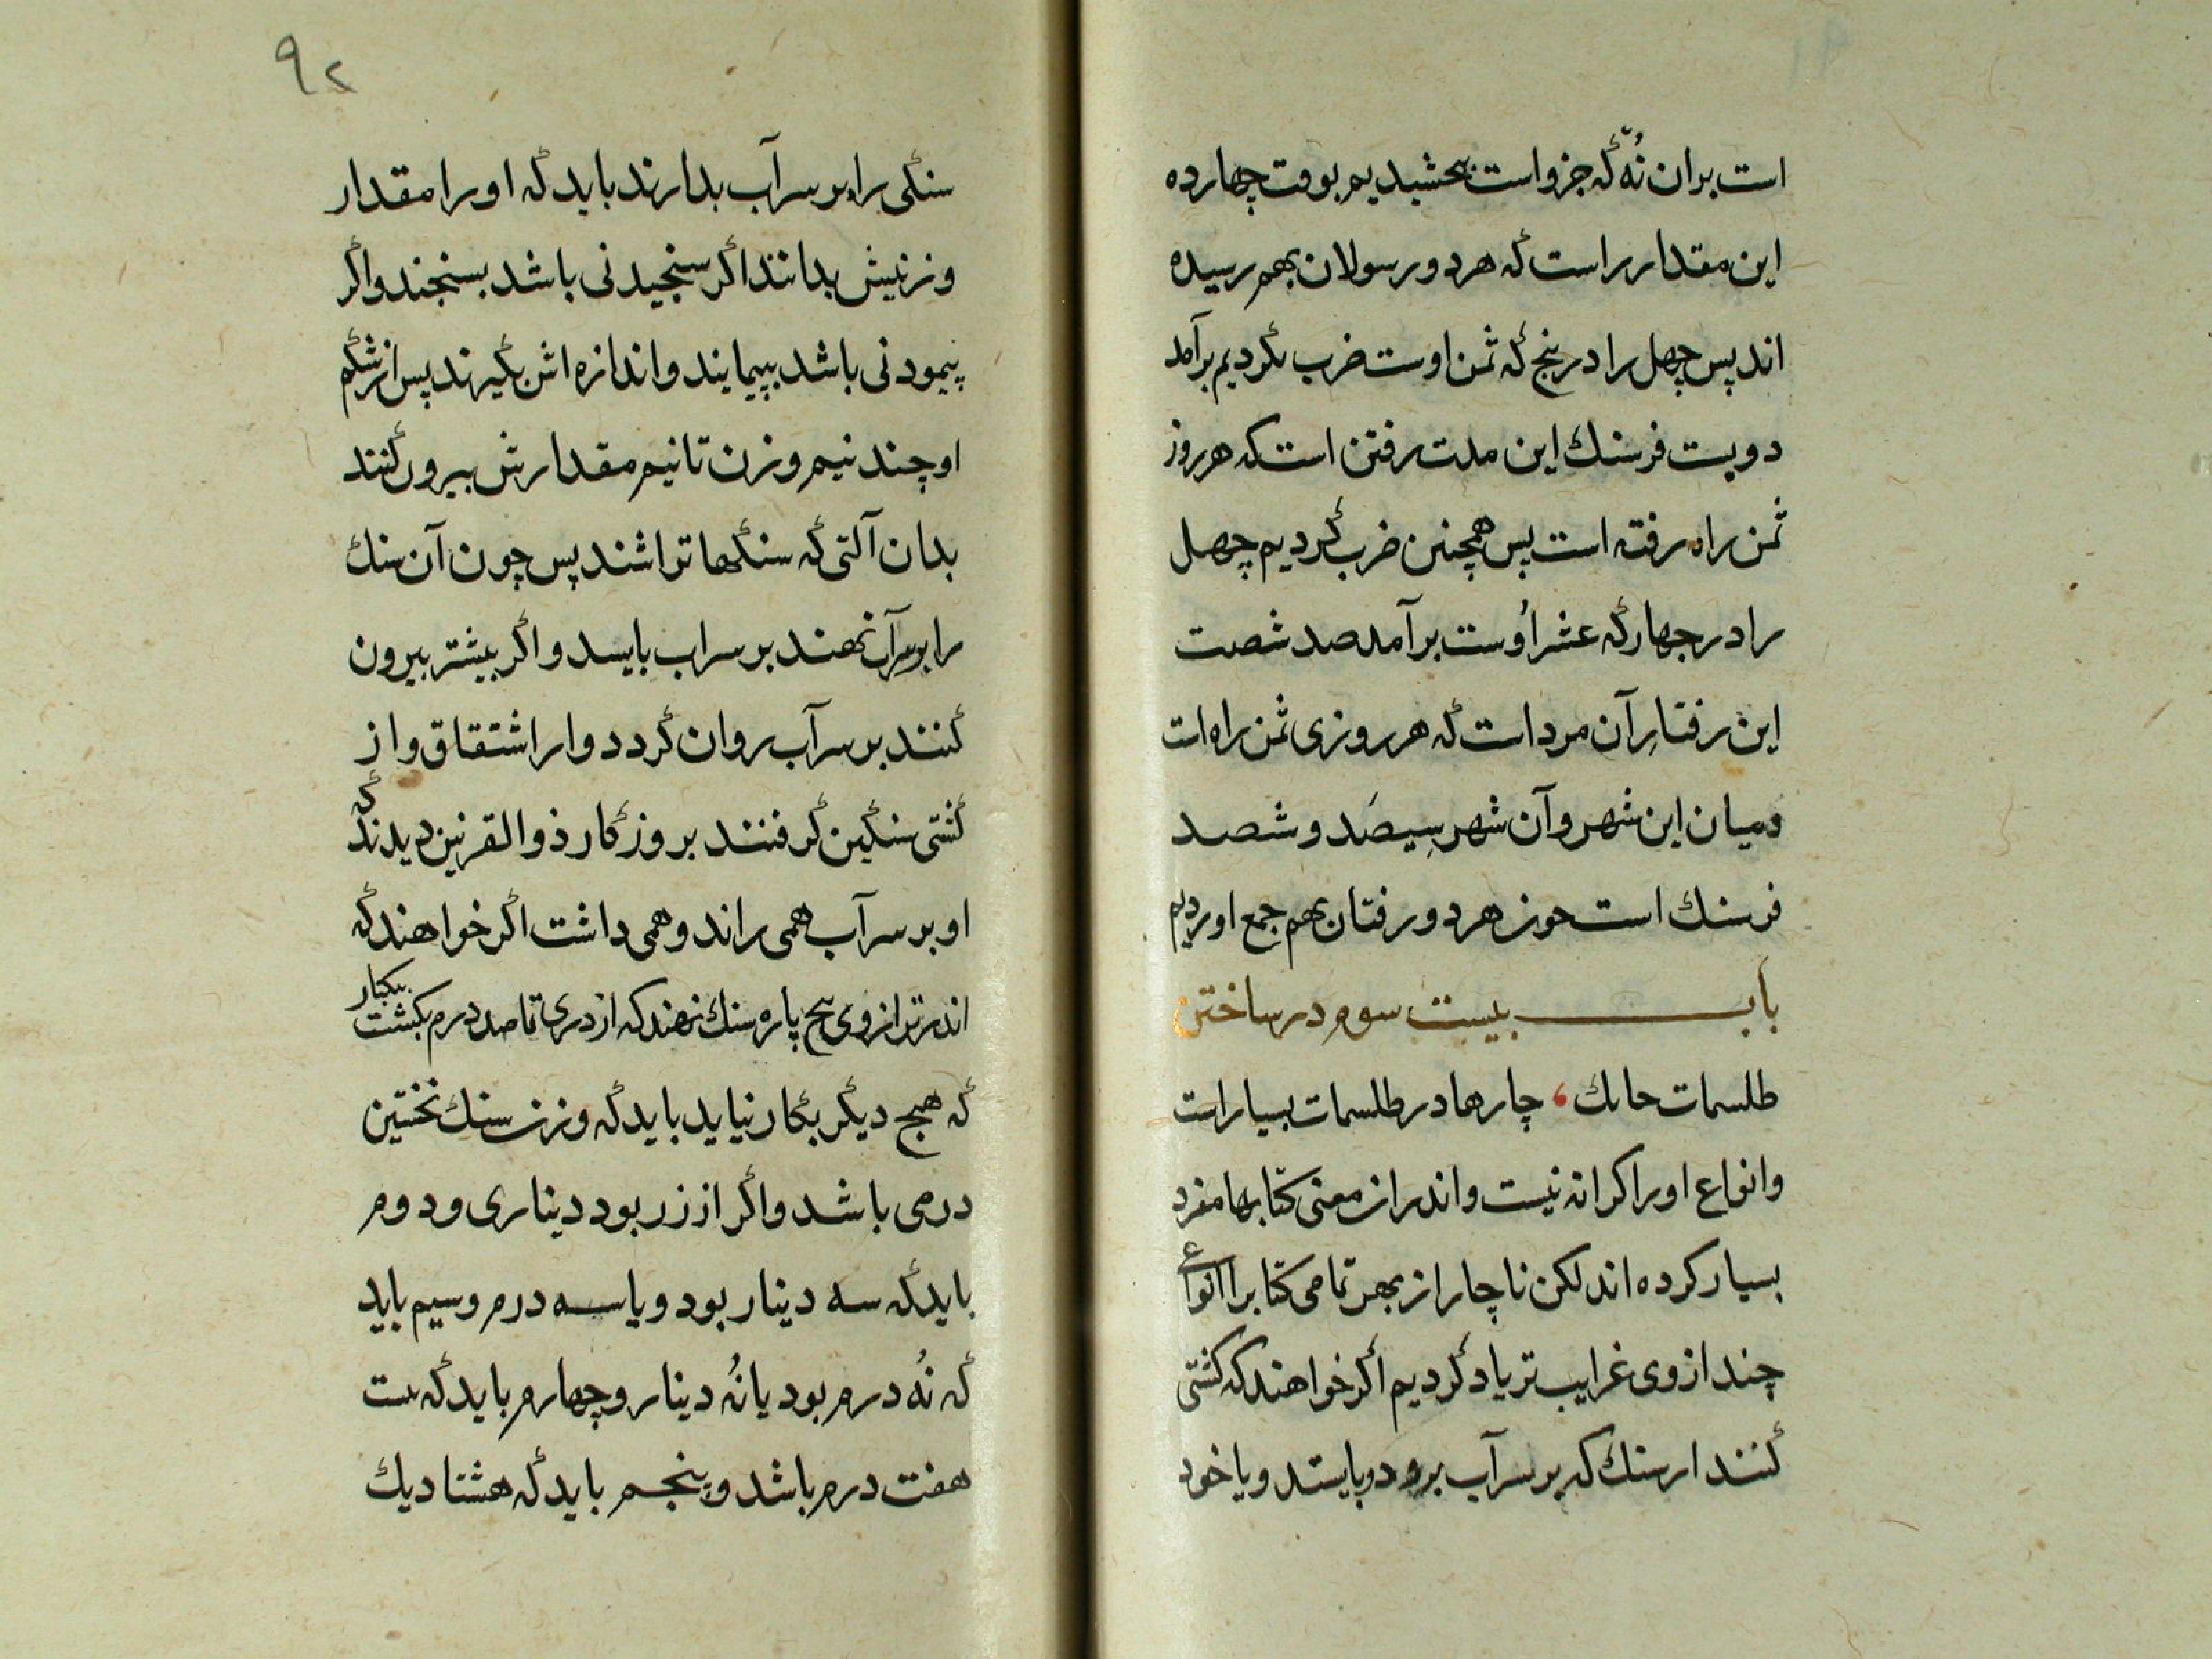 است بران نُه که جزو است بخشیدیم بوقت چهارده
این مقدار راست که هر دو رسولان بهم رسیده
اند پس چهل را در پنج که ثمن اوست ضرب کردیم برآمد
دویست فرسنك این مدت رفتن است که هر روز
ثمن راه رفته است پس همچنین ضرب کردیم چهل
را در چهار که عشر اُوست برآمد صد شصت
این رفتارِ آن مرد است که هر روزی ثمن راه است
میان این شهر و آن شهر سِیصَد و شصد
فرسنك است هر دو رفتان بهم جمع اوردیم
باب بیست سوم در ساختن
طلسمات چارها در طلسمات بسیار است
وانواع او را کرانه نیست و اندر ان معنی کتابها مفرد
بسیار کرده اند لکن ناچار از بهر تمامی کتاب را انواع
چند از وی غرایب تر یاد کردیم اکر خواهند که کشتی
کنند از سنك که بر سر آب برود و بایستد و یا خود
۹۲
سنکی را بر سر آب بدارند باید که او را مقدار
وزنیش بدانند اکر سنجیدنی باشد بسنجند واکر
پیمودنی باشد بپیمایند و اندازه اش بکیرند پس از شکم
او چند نیم وزن تا نیم مقدارش بیرون کنند
بدان آلتی که سنکها تراشند پس چون آن سنك
را بر سر آب نهند بر سر اب بایسد و اکر بیشتر بیرون
کنند بر سر آب روان کردد و ار اشتقاق و از
کشتی سنکین کرفتند بروزکار ذوالقرنین دیدند که
او بر سر آب همی راند و همی داشت اکر خواهند که
اندر ترازوی پنج پاره سنك نهند که از درمی تا صد درم بکشت بیکبار
که هیچ دیکر بکار نیاید باید که وزن سنك نخستین
درمی باشد واکر از زر بود دیناری و دوم
باید که سه دینار بود و یا سه درم و سیم باید
که نُه درم بود یا نُه دینار و چهارم باید که بیست
هفت درم باشد و پنجم باید که هشتاد یك